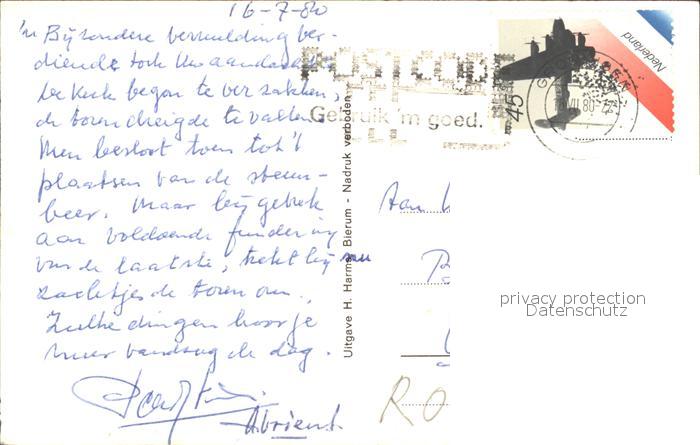 16-7-80
'n Bijzondere vermelding ver-
diende toch
De kerk begon te verzakken,
de toren dreigde te vallen.
Men besloot toen tot 't
plaatsen van de steun-
beer. Maar bij gebrek
aan voldoende fundering
van de laatste, trekt hij nu
zachtjes de toren om.
Zulke dingen hoor je
meer vandaag de dag.
Uitgave H. Harms, Bierum - Nadruk verboden
POSTCODE
Gebruik 'm goed.
45
Nederland
VII.80
Aan
RO
privacy protection
Datenschutz